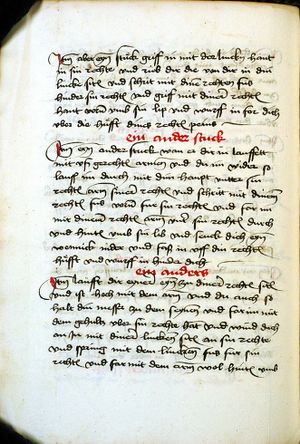 Itm aber ein stuck griff im mit der lincken hant
in sin rechte und rid die die von dir in din
lincke sit und schrit mit dinem rechten fuß
hinder sin rechte und griff mit dinem rechten
hant vorn umb sin lip und wurff in for dich
uber die hufft dines rechtes peins
ein ander stuck
Itm ein ander stuck wan er dir in laufft
mit uff gerechte armen und du im wider so
lauff im durch mit dem haupt unter sin
rechten arm siner rechte und schrit mit dinem
rechten fuß vorn fur sin rechte und far im
mit dinem rechten arm unter sin rechte durch
und hinten umb sin lib und senck dich ein
wennick nider und faß in uff din rechte
hufft und wurff in hinder dich
ein anders
Itm laufft dir einer ein zu diner rechten sit
und ist hoch mit dem arm und du auch so
halt din messer zu dem seinen und far im mit
dem gehultz uber sin rechte hant und wind dich
an im mit diner lincken sit an sin rechte
und spring mit dem lincken fuß fur sin
rechten und far mit dem arm wol hinten umb